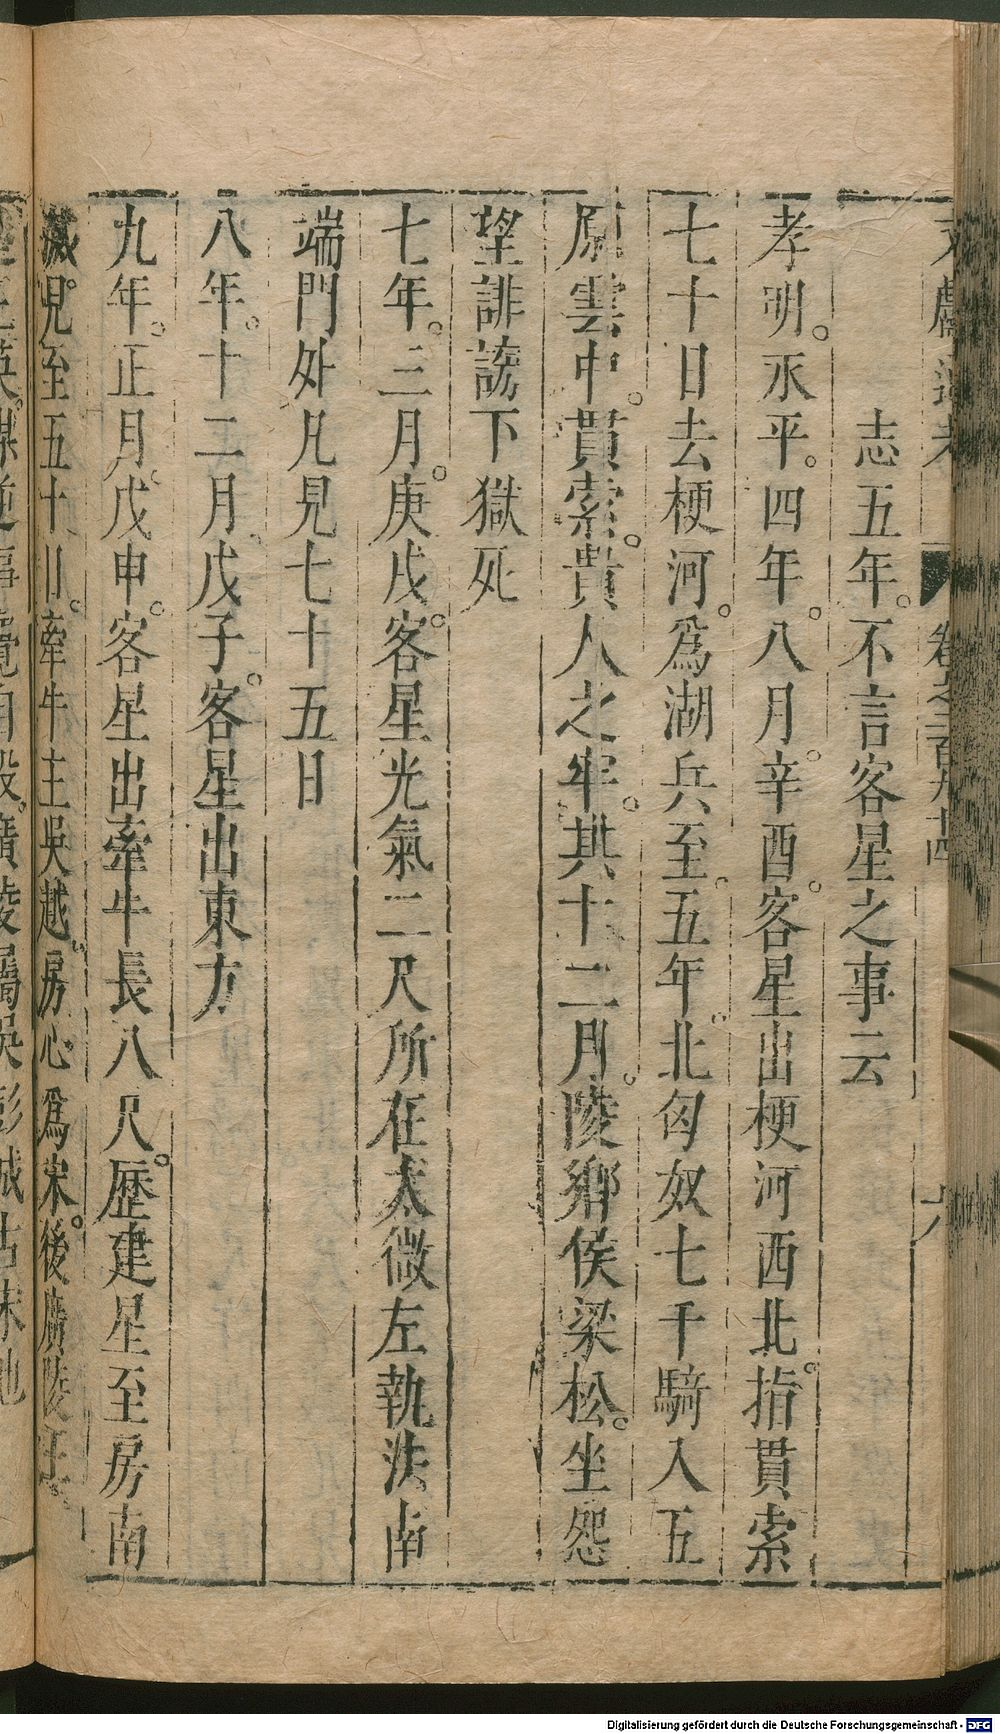 志五年不言客星之事云
孝明永平四年八月辛酉客星出梗河西北指貫索
七十日去梗河爲湖兵至五年北匈奴七千騎入五
原雲中貫索貴人之牢其十二月陵鄉侯梁松坐怨
望誹謗下獄死
七年三月庚戌客星光氣二尺所在太微左執法南
端門外凡見七十五日
八年十二月戊子客星出東方
九年正月戊申客星出牽牛長八尺歷建星至房南
滅見至五十日牽牛主吳越房心爲宋後廣陵王
Digitalisierung gefördert durch die Deutsche Forschungsgemeinschaft - DFG